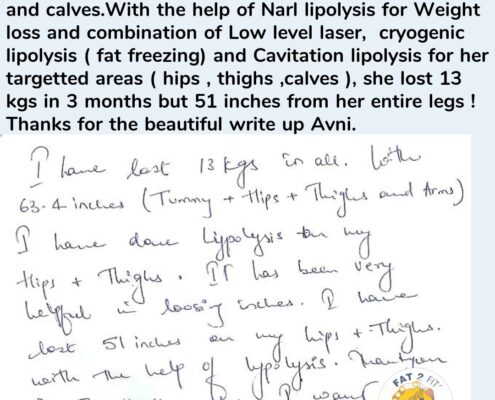 and calves.With the help of Narl lipolysis for Weight
loss and combination of Low level laser, cryogenic
lipolysis ( fat freezing) and Cavitation lipolysis for her
targetted areas ( hips , thighs ,calves ), she lost 13
kgs in 3 months but 51 inches from her entire legs !
Thanks for the beautiful write up Avni.
I have lost 13 kgs in all. With
63.4 inches (Tummy + Hips + Thighs and Arms)
I have done Lypolysis on my
Hips + Thighs. It has been very
helpful in loosing inches. I have
lost 51 inches on my hips + Thighs.
with the help of lypolysis. Thankyou
I want
FAT 2 FIT